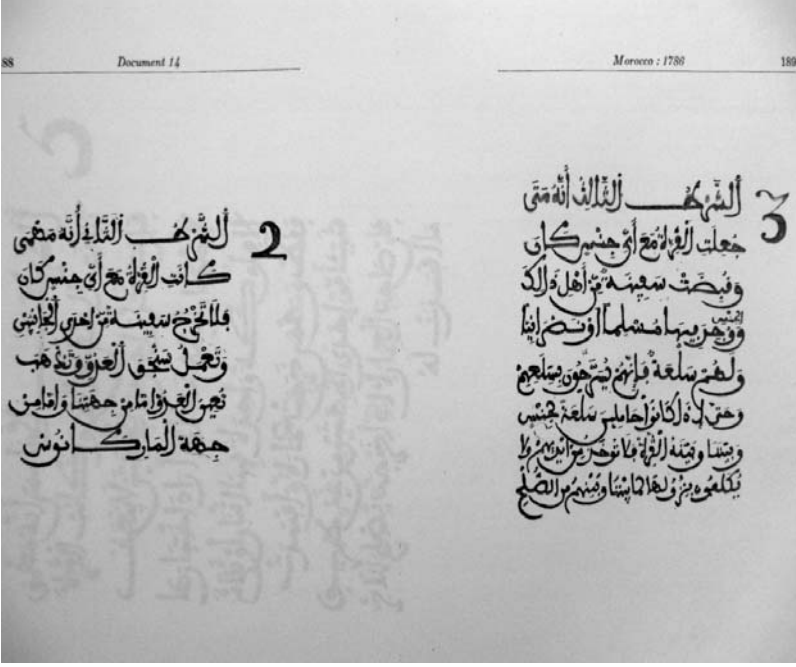 88 Document 14
2
ألشرط الثاني أنه مهمى
كانت القرة مع أي جنس كان
فلا تخرج سفينة من إحدى الجانبين
وتعمل سنجق العدو وتذهب
تعين العدو إما من جهتنا وإما من
جهة الماركانوس
Morocco : 1786 189
3
ألشرط الثالث أنه متى
جعلت القرة مع أي جنس كان
وقبضت سفينة من أهل ذالك
الجنس
ووجد بها مسلما أو نصرانيا
ولهم سلعة فإنهم يسرحون بسلعهم
وحتى إذا كانوا حاملين سلعة لجنس
وبيننا وبينه القرة فلا توخذ من أيديهم ولا
يكلفوه بنزولها لما بيننا وبينهم من الصلح